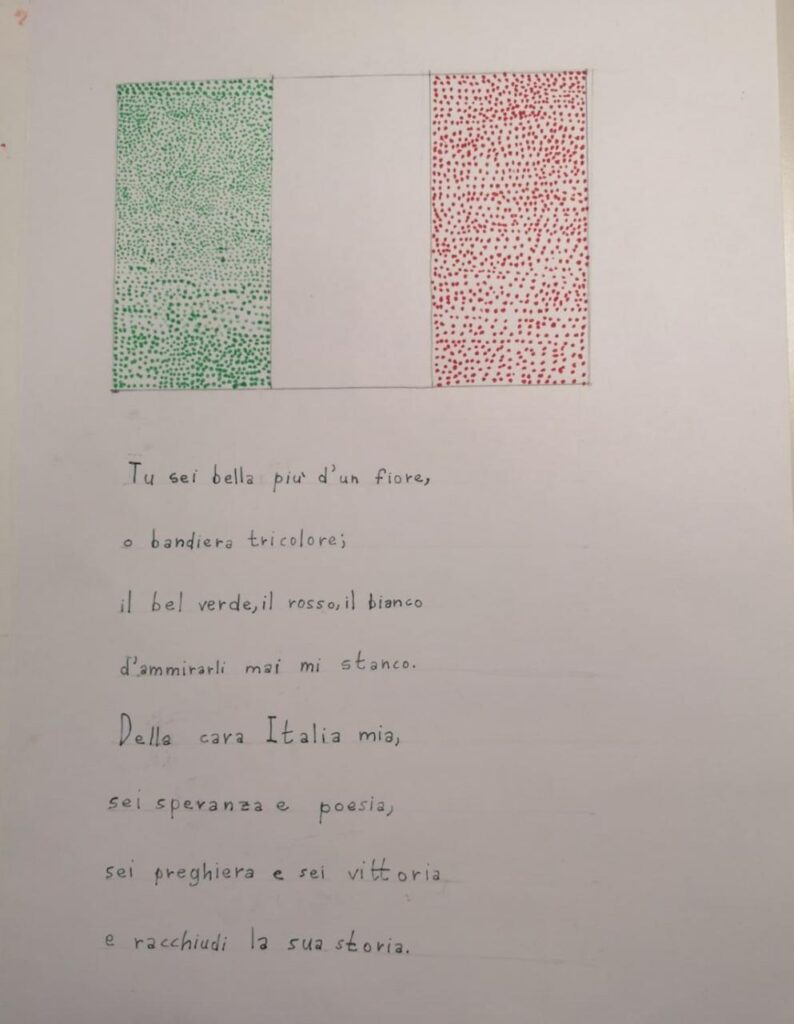 Tu sei bella piu' d'un fiore,
o bandiera tricolore;
il bel verde, il rosso, il bianco
d'ammirarli mai mi stanco.
Della cara Italia mia,
sei speranza e poesia,
sei preghiera e sei vittoria
e racchiudi la sua storia.